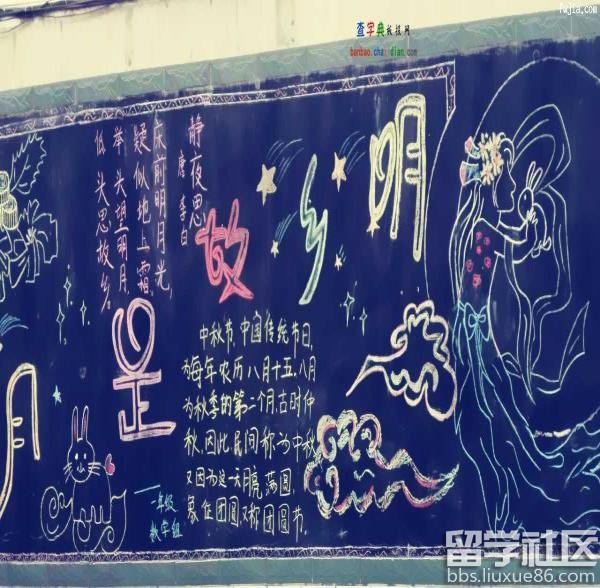 查字典板报网
banbao.chazidian.com
静夜思
唐 李白
床前明月光,
疑似地上霜。
举头望明月,
低头思故乡。
月是故乡明
中秋节,中国传统节日,
为每年农历八月十五,八月
为秋季的第二个月,古时仲
秋,因此民间称为中秋
又因为这一天月亮满圆,
象征团圆又称团圆节。
一年级
数学组
留学社区
bbs.liuxue86.com